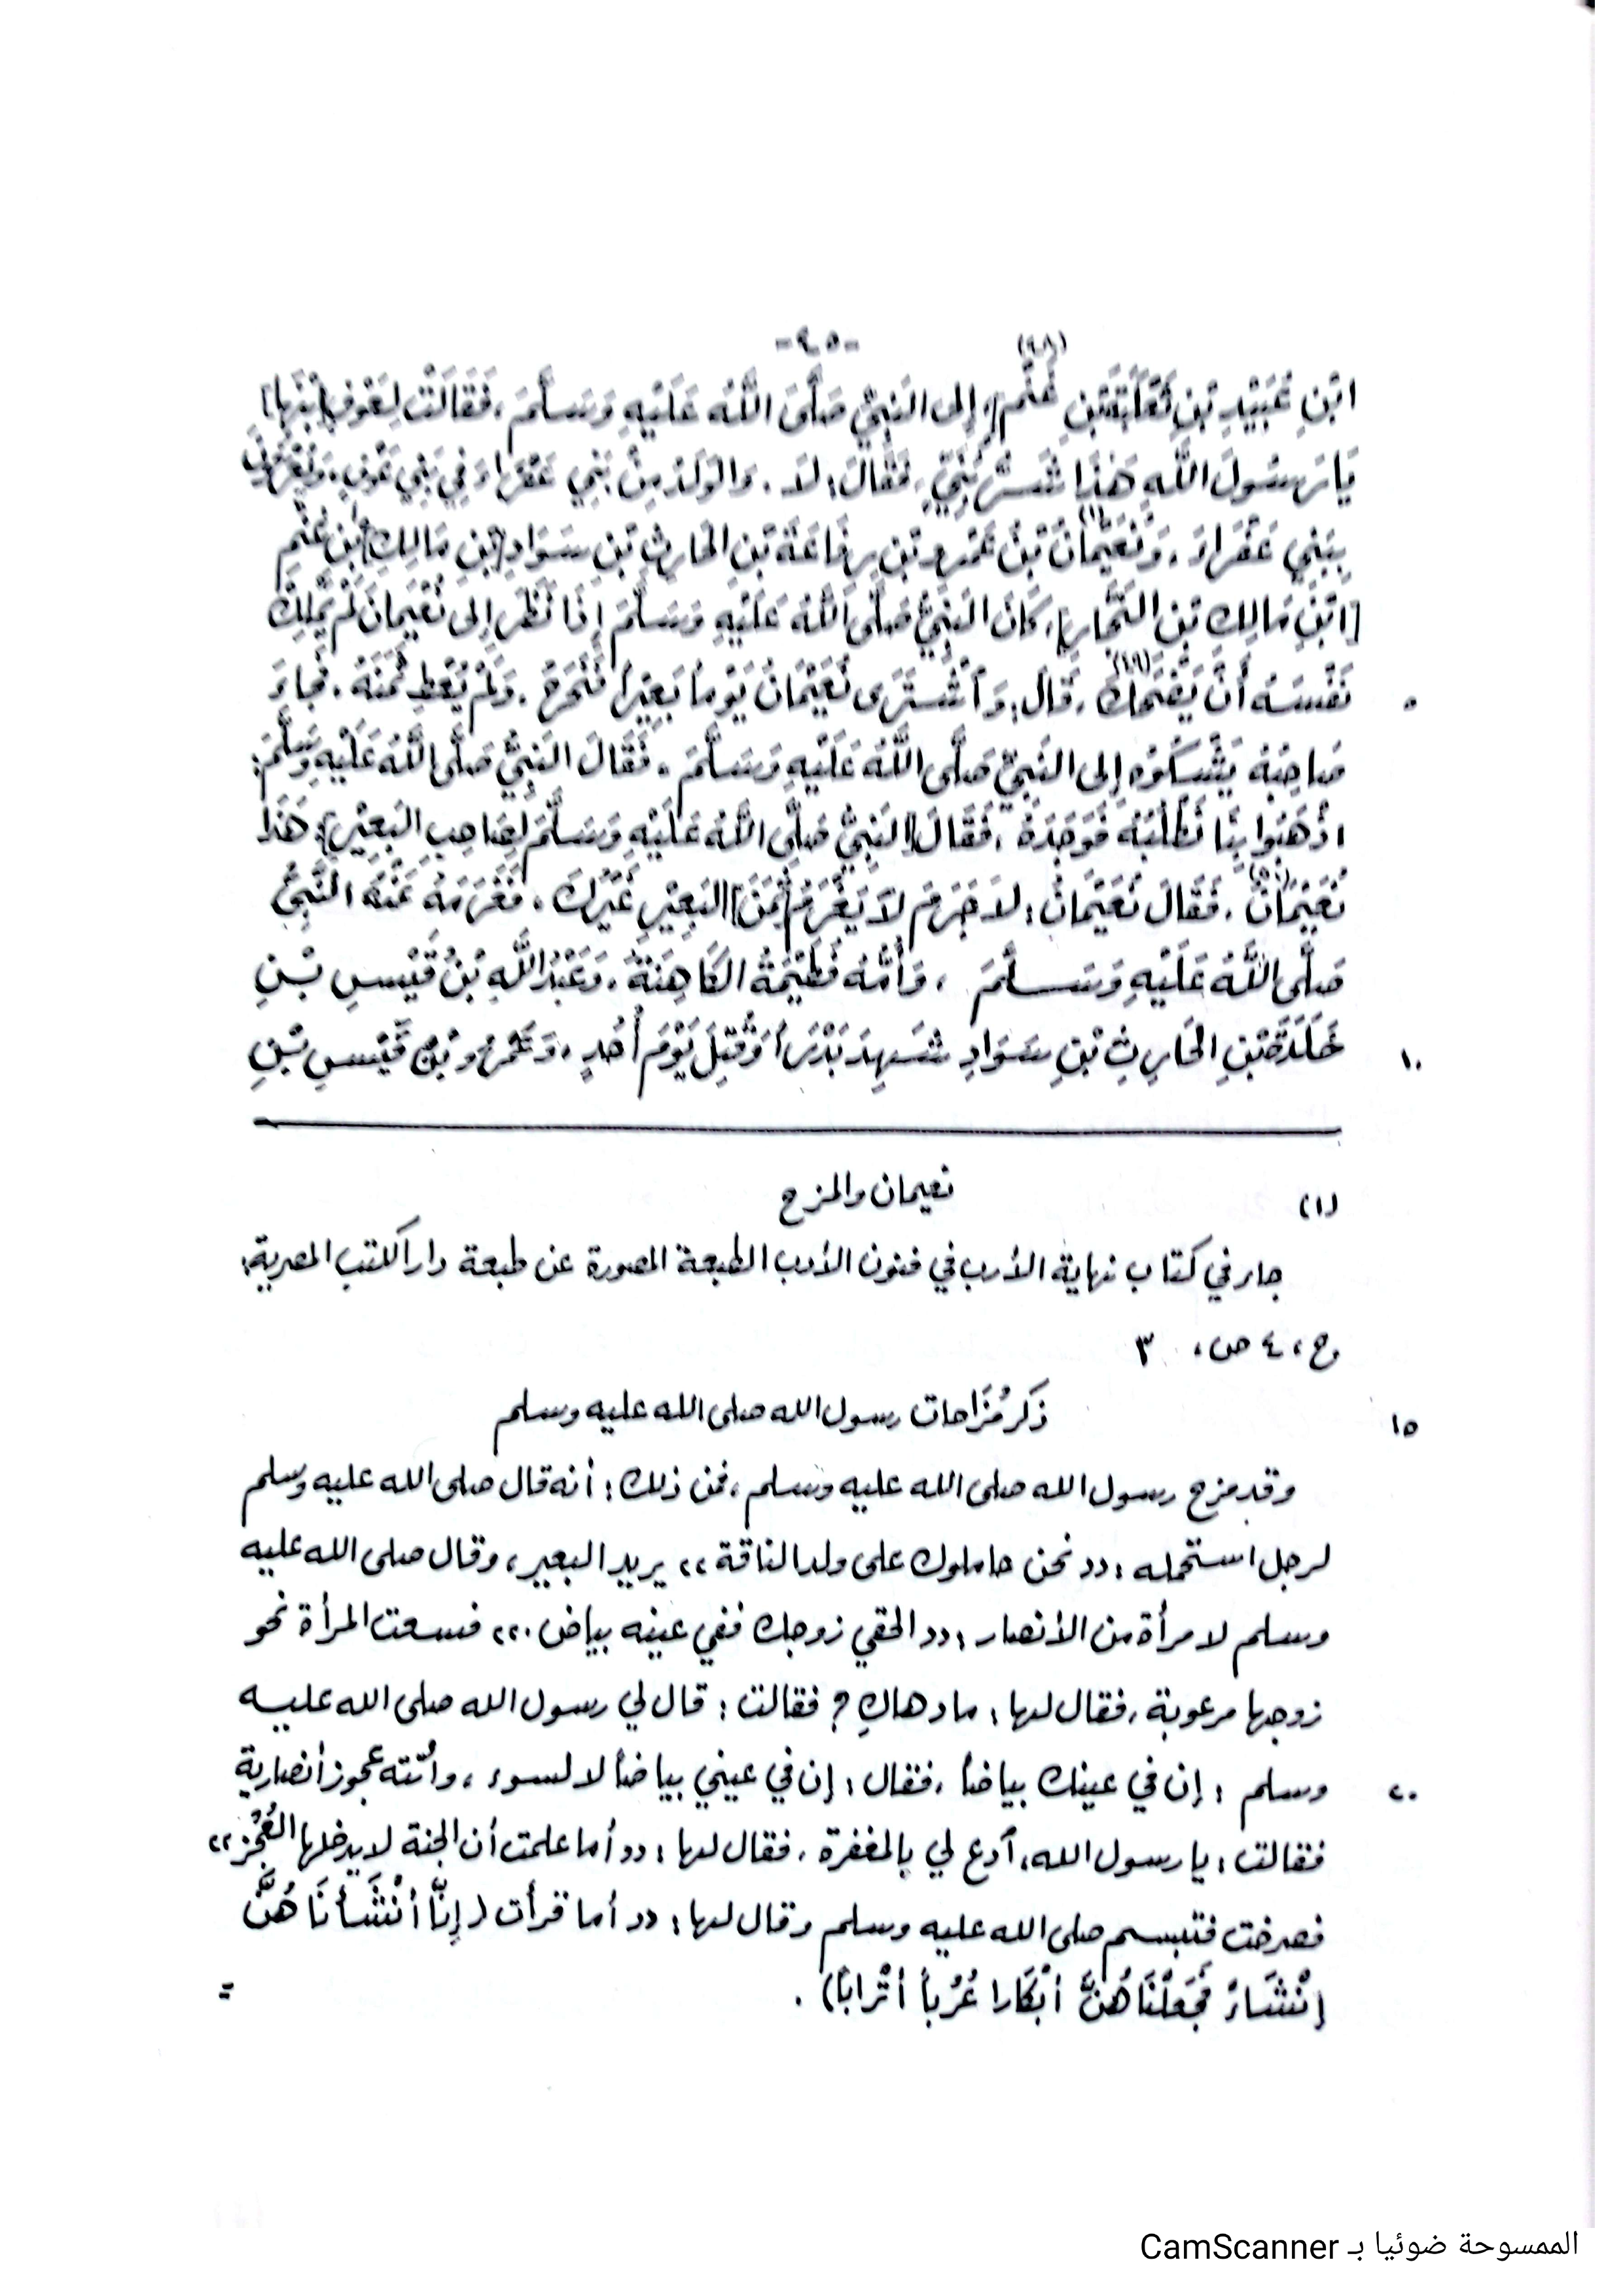 -٩٥-
(٤٨)
ابْنِ عُبَيْدِ بْنِ ثَعْلَبَةَ بْنِ غَنْمٍ] إِلى النَبِيِّ صَلَّى اللَّهُ عَلَيْهِ وَسَلَّمَ، فَقَالَتْ لِعَوْفٍ [ابْنِهَا]
يَا رَسُولَ اللَّهِ هَذَا شَرُّ بَنِيَّ، فَقَالَ: لَا. وَالوَلَدُ مِنْ بَنِي عَفْرَاءَ فِي بَنِي عَوْفٍ، وَيُعْرَفُونَ
بِبَنِي عَفْرَاءَ، وَنُعَيْمَانُ(١) بْنُ عَمْرِو بْنِ رِفَاعَةَ بْنِ الحَارِثِ بْنِ سَوَادِ [بْنِ مَالِكِ] بْنِ غَنْمِ
[ابْنِ مَالِكِ بْنِ النَجَّارِ]، كَانَ النَبِيُّ صَلَّى اللَّهُ عَلَيْهِ وَسَلَّمَ إِذَا نَظَرَ إِلى نُعَيْمَانَ لَمْ يَمْلِكْ
نَفْسَهُ أَنْ يَضْحَكَ(٤٩)، قَالَ: وَٱشْتَرَى نُعَيْمَانُ يَوْماً بَعِيْراً فَنَحَرَهُ، وَلَمْ يُعْطِ ثَمَنَهُ، فَجَاءَ
٥
صَاحِبُهُ يَشْكُوْهُ إِلى النَبِيِّ صَلَّى اللَّهُ عَلَيْهِ وَسَلَّمَ، فَقَالَ النَبِيُّ صَلَّى اللَّهُ عَلَيْهِ وَسَلَّمَ:
اذْهَبُوا بِنَا نَطْلُبْهُ فَوَجَدَهُ، فَقَالَ [النَبِيُّ صَلَّى اللَّهُ عَلَيْهِ وَسَلَّمَ لِصَاحِبِ البَعِيْرِ]: هَذَا
نُعَيْمَانُ(٥٠)، فَقَالَ نُعَيْمَانُ: لَا جَرَمَ لَا يَغْرَمُ [ثَمَنَ] البَعِيْرِ غَيْرُكَ، فَغَرِمَهُ عَنْهُ النَّبِيُّ
صَلَّى اللَّهُ عَلَيْهِ وَسَلَّمَ، وَأُمُّهُ فُطَيْمَةُ الكَاهِنَةُ، وَعَبْدُ اللَّهِ بْنُ قَيْسِ بْنِ
خَلَدَةَ بْنِ الحَارِثِ بْنِ سَوَادِ شَهِدَ بَدْرَاً وَقُتِلَ يَوْمَ أُحُدٍ، وَعَمْرُو بْنُ قَيْسِ بْنِ
١٠
(١) نعيمان والمزح
جاء في كتاب نهاية الأرب في فنون الأدب الطبعة المصورة عن طبعة دار الكتب المصرية:
ج، ٤ ص، ٣
ذَكر مُزَاحات رسول الله صلى الله عليه وسلم
١٥
وقد مزح رسول الله صلى الله عليه وسلم، فمن ذلك: أنه قال صلى الله عليه وسلم
لرجل استحمله: «نحن حاملوك على ولد الناقة» يريد البعير، وقال صلى الله عليه
وسلم لامرأة من الأنصار: «الحقي زوجك ففي عينه بياض.» فسعت المرأة نحو
زوجها مرعوبة، فقال لها: ما دهاكِ؟ فقالت: قال لي رسول الله صلى الله عليه
وسلم: إن في عينك بياضاً، فقال: إن في عيني بياضاً لا لسوء، وأتته عجوز أنصارية
٢٠
فقالت: يا رسول الله، ٱدع لي بالمغفرة، فقال لها: «أما علمت أن الجنة لا يدخلها العُجُز»
فصرخت فتبسم صلى الله عليه وسلم وقال لها: «أما قرأت (إِنَّا أنْشَأنَاهُنَّ
إنْشَاءً فَجَعَلْنَاهُنَّ أبْكَارا عُرُباً أتْرَاباً).
=
الممسوحة ضوئيا بـ CamScanner